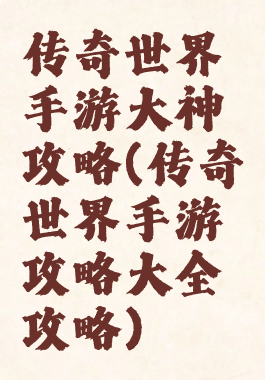 传奇世界
手游大神
攻略(传奇
世界手游
攻略大全
攻略)